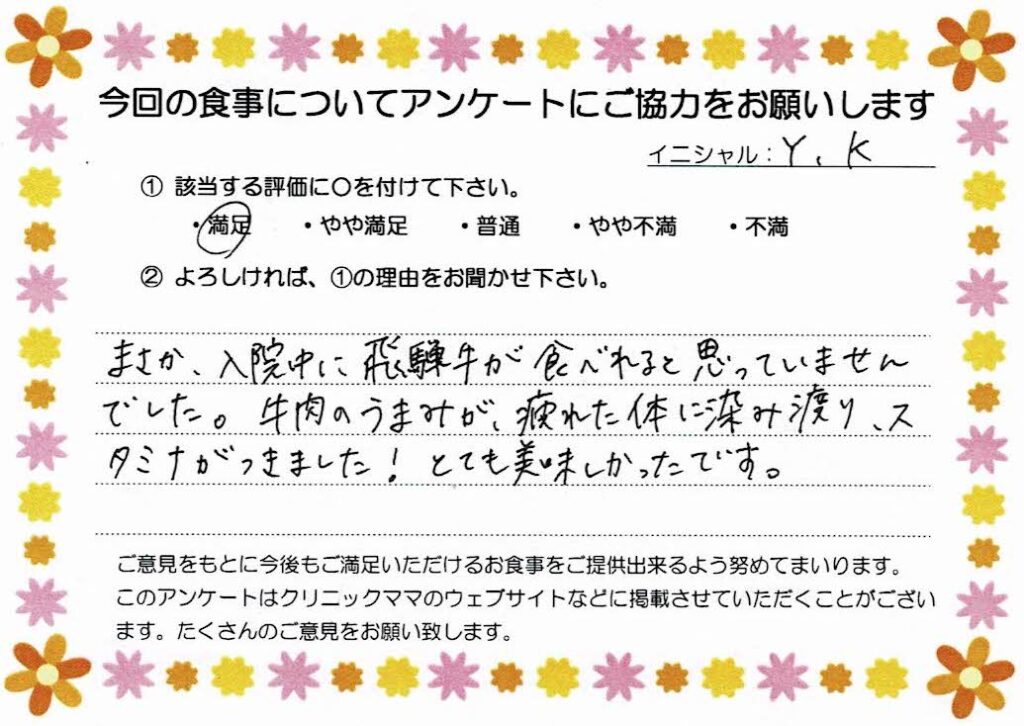 今回の食事についてアンケートにご協力をお願いします
イニシャル：Y、K
① 該当する評価に〇を付けて下さい。
・満足 ・やや満足 ・普通 ・やや不満 ・不満
② よろしければ、①の理由をお聞かせ下さい。
まさか、入院中に飛騨牛が食べれると思っていません
でした。牛肉のうまみが、疲れた体に染み渡り、ス
タミナがつきました！とても美味しかったです。
ご意見をもとに今後もご満足いただけるお食事をご提供出来るよう努めてまいります。
このアンケートはクリニックママのウェブサイトなどに掲載させていただくことがござい
ます。たくさんのご意見をお願い致します。